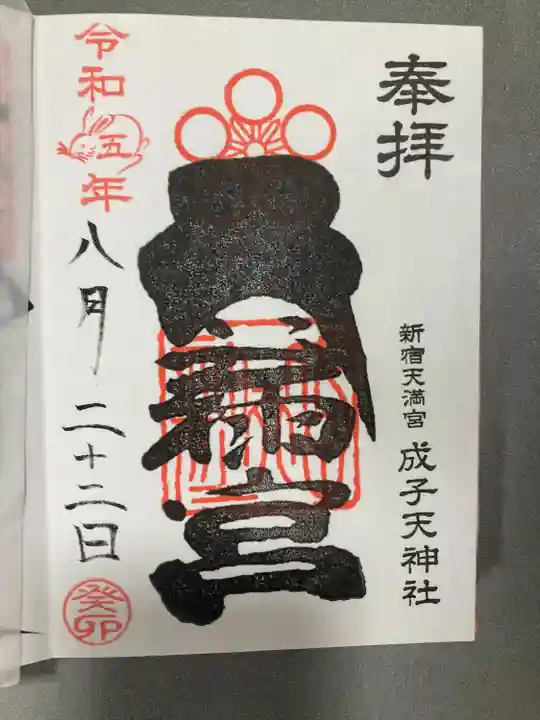 奉拝
新宿天満宮 成子天神社
天満宮
令和五年八月二十二日
癸卯